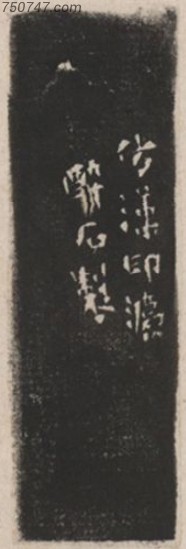 750747.com
仿漢印灋
醉石製